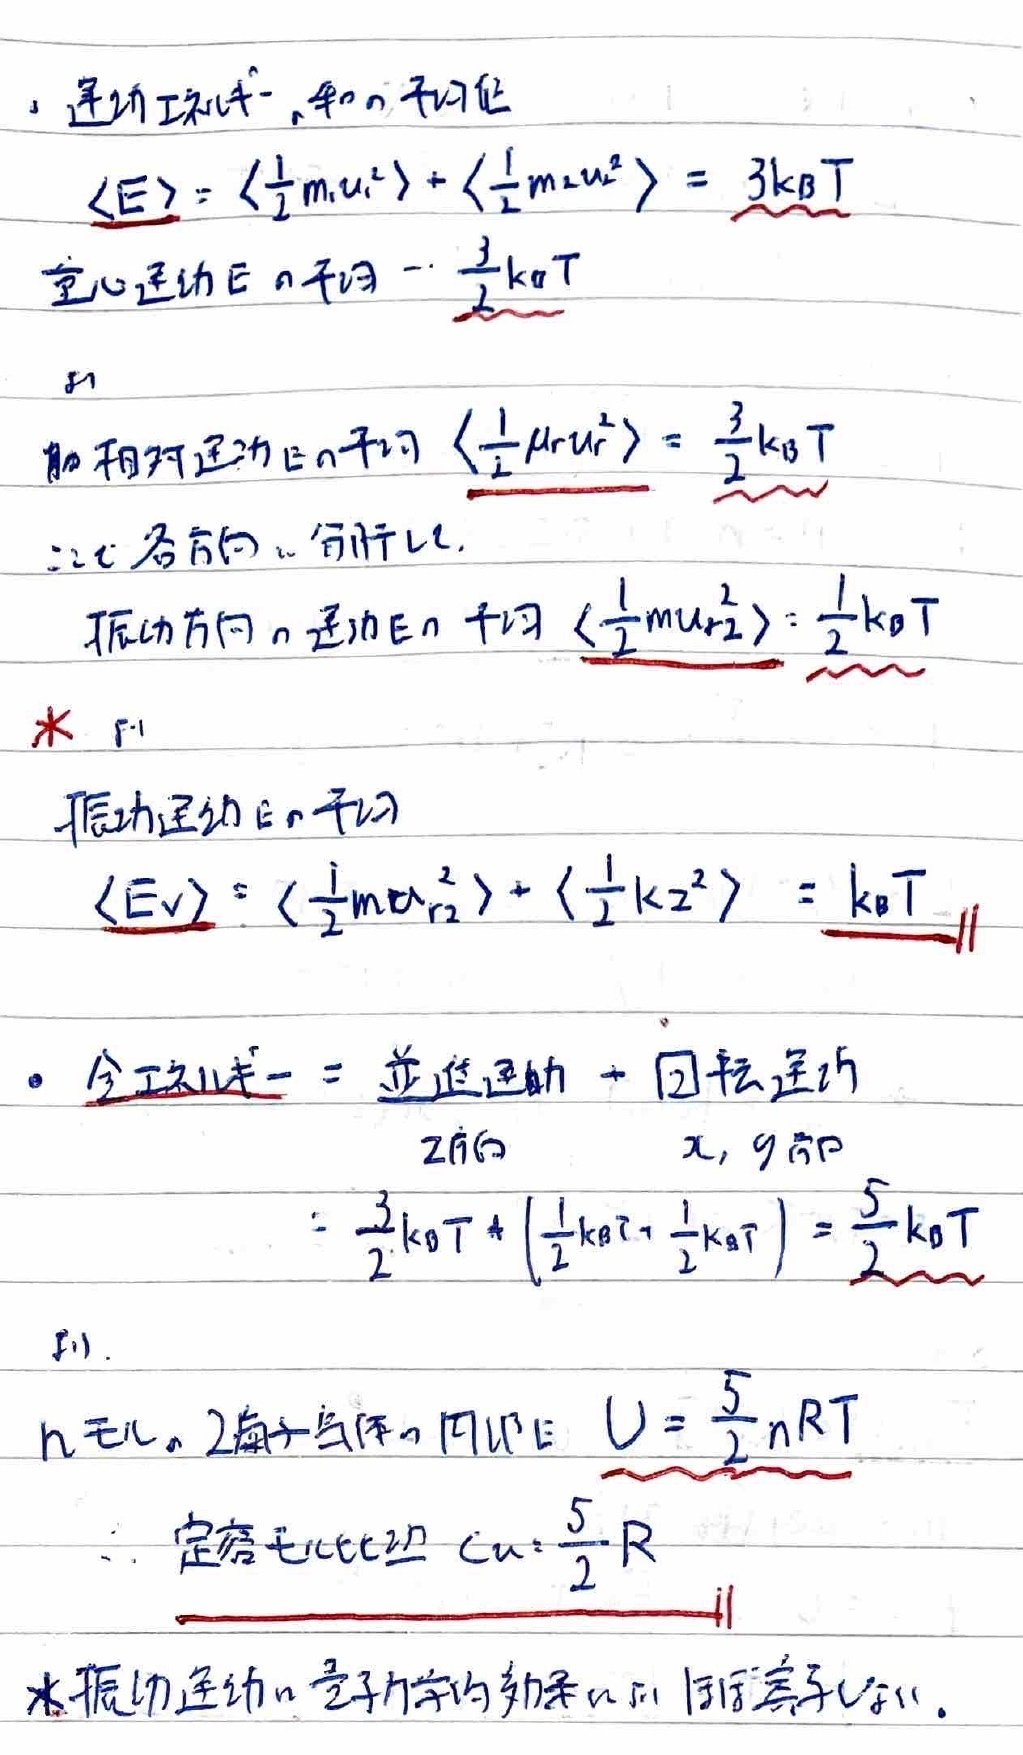 ・運動エネルギーの和の平均値
<E> = <1/2 m₁u₁²> + <1/2 m₂u₂²> = 3kBT
重心運動Eの平均 … 3/2 kBT
より
相対運動Eの平均 <1/2 μrur²> = 3/2 kBT
ここで各方向に分解して、
振動方向の運動Eの平均 <1/2 murz²> = 1/2 kBT
* より
振動運動Eの平均
<Ev> = <1/2 murz²> + <1/2 kz²> = kBT
・全エネルギー = 並進運動 + 回転運動
z方向 x, y方向
= 3/2 kBT + (1/2 kBT + 1/2 kBT) = 5/2 kBT
より.
nモルの2原子気体の内部E U = 5/2 nRT
∴ 定容モル比熱 Cv = 5/2 R
*振動運動は量子力学的効果により ほぼ寄与しない.